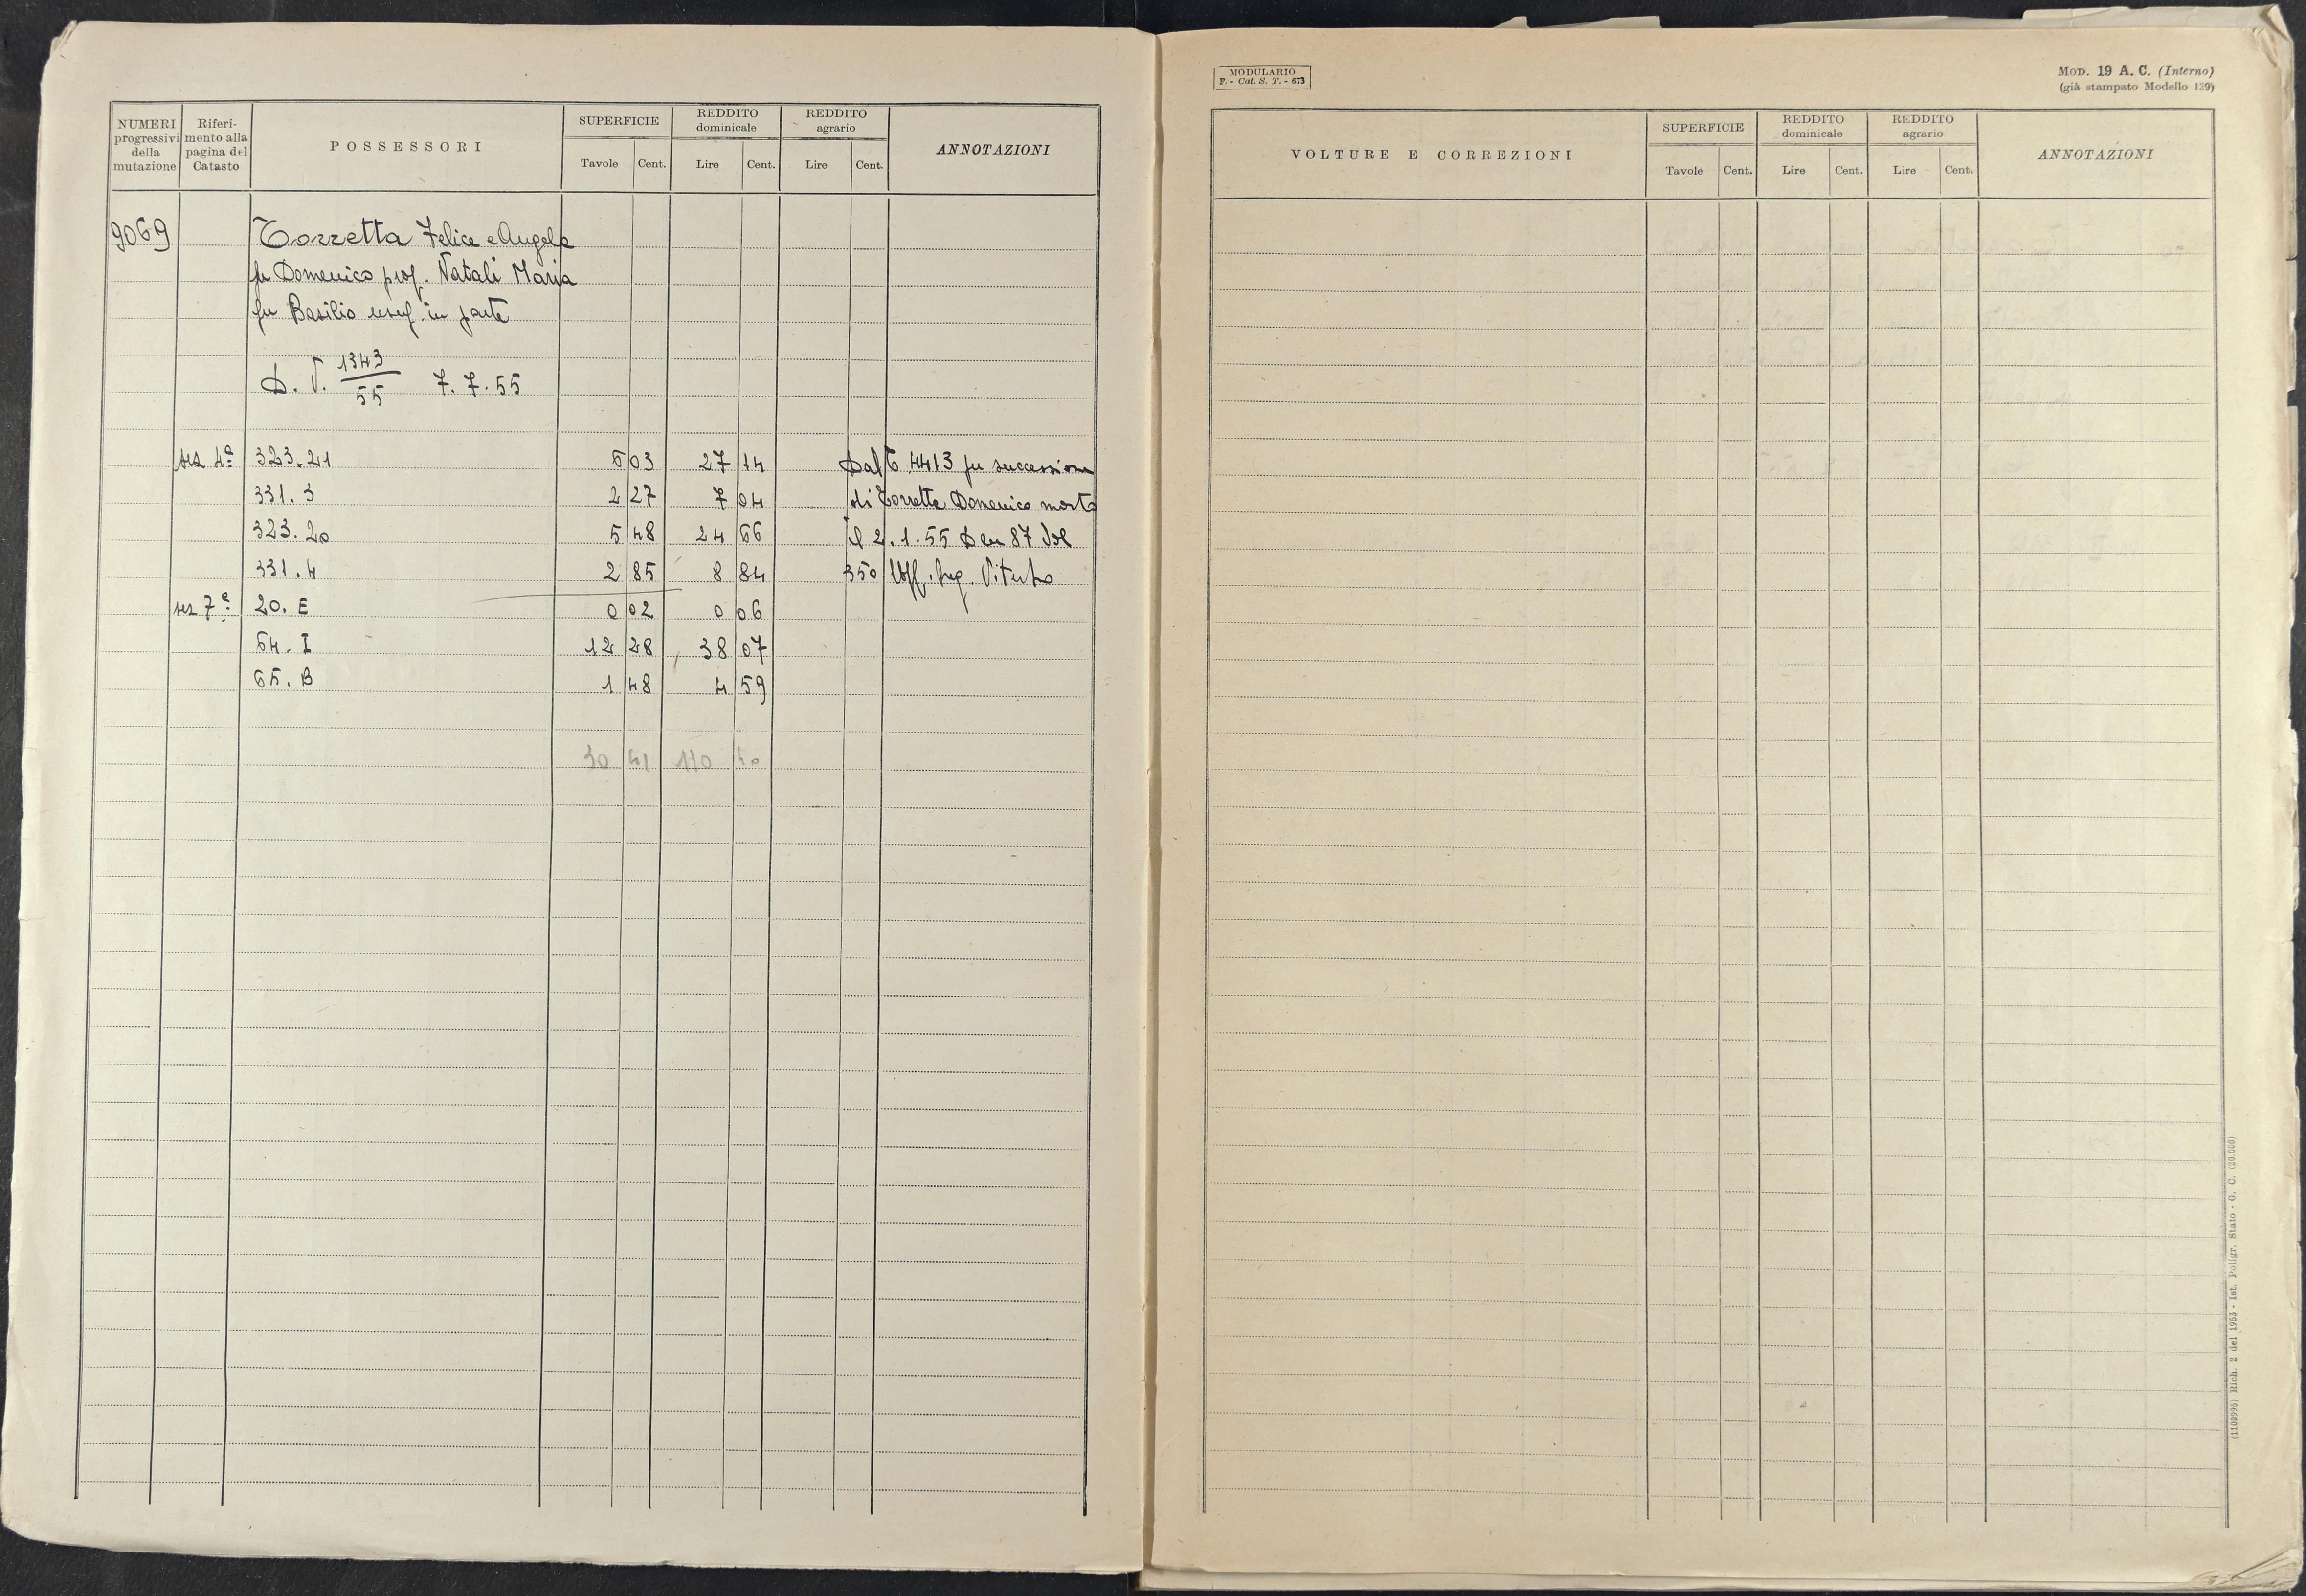 NUMERI
progressivi
della
mutazione
Riferi-
mento alla
pagina del
Catasto
POSSESSORI
SUPERFICIE
Tavole Cent.
REDDITO
dominicale
Lire Cent.
REDDITO
agrario
Lire Cent.
ANNOTAZIONI
9069 Torretta Felice e Angelo
fu Domenico prof. Natali Maria
fu Basilio usuf. in parte
D. V. 1343/55 7.7.55
sez 4ª 323.21 6 03 27 14 Dal 6 4413 per successione
331.3 2 27 7 04 di Torretta Domenico morto
323.20 5 48 24 66 il 2.1.55 Den 87 Vol
331.4 2 85 8 84 350 Uff. Reg. Viterbo
sez 7ª 20. E 0 02 0 06
64. I 12 28 38 07
65. B 1 48 4 59
30 41 110 40
MODULARIO
F. - Cat. S. T. - 673
MOD. 19 A. C. (Interno)
(già stampato Modello 129)
VOLTURE E CORREZIONI
SUPERFICIE
Tavole Cent.
REDDITO
dominicale
Lire Cent.
REDDITO
agrario
Lire Cent.
ANNOTAZIONI
(1100996) Rich. 2 del 1953 - Ist. Poligr. Stato - G. C. (20.000)